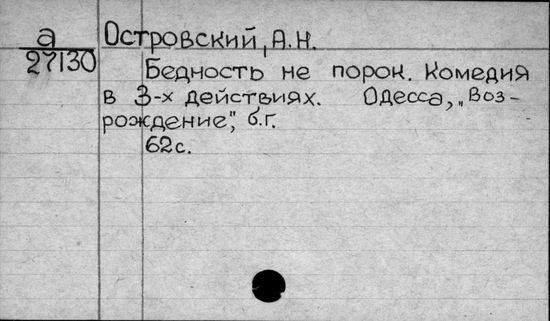 а
27130
Островский, А.Н.
Бедность не порок. Комедия
в 3-х действиях. Одесса, „Воз-
рождение", б.г.
62с.